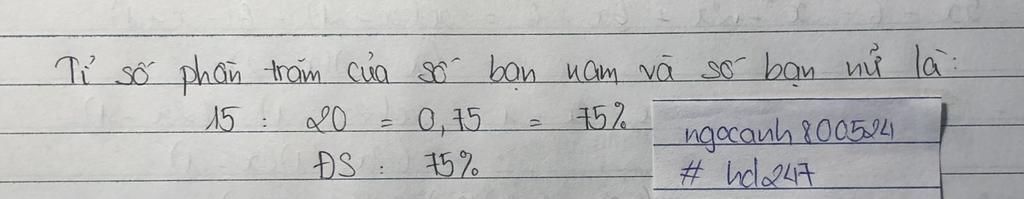 Tỉ số phần trăm của số bạn nam và số bạn nữ là:
15 : 20 = 0,75 = 75%
ĐS : 75%
ngocanh800524
# hd247